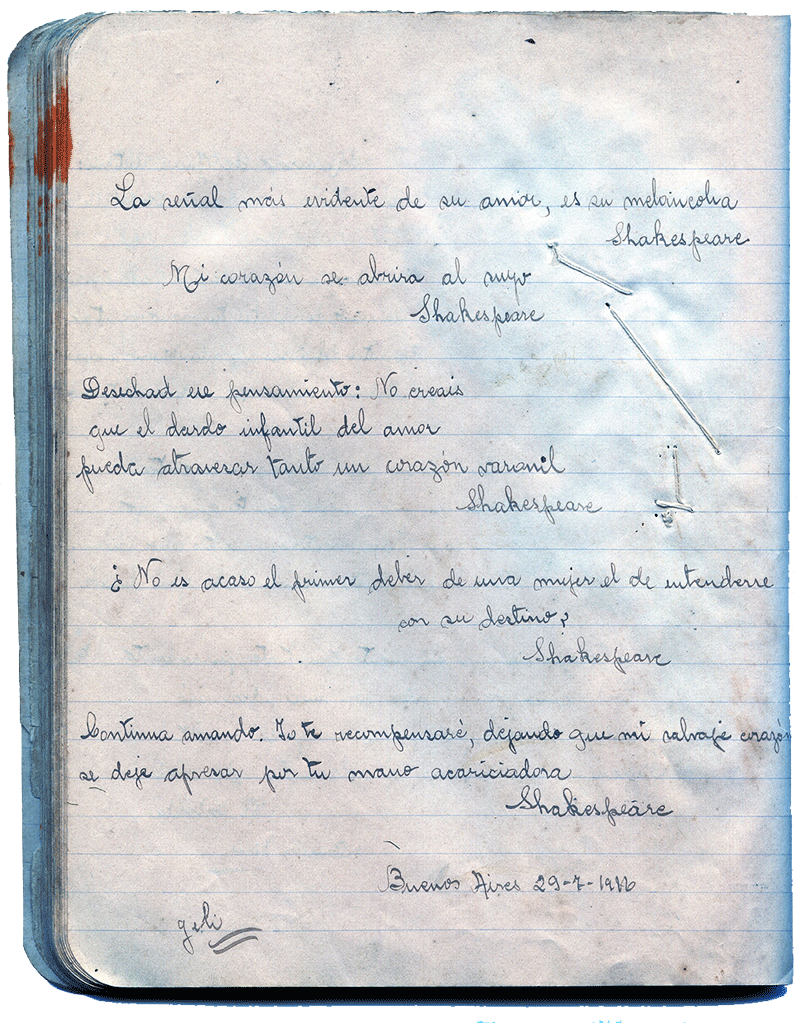 La señal más evidente de su amor, es su melancolia
Shakespeare
Mi corazón se abrira al suyo
Shakespeare
Desechad ese pensamiento: No creais
que el dardo infantil del amor
pueda atravesar tanto un corazón varonil
Shakespeare
¿No es acaso el primer deber de una mujer el de entenderse
con su destino?
Shakespeare
Continua amando. Yo te recompensaré, dejando que mi salvaje corazón
se deje apresar por tu mano acariciadora
Shakespeare
Buenos Aires 29-7-19
geli